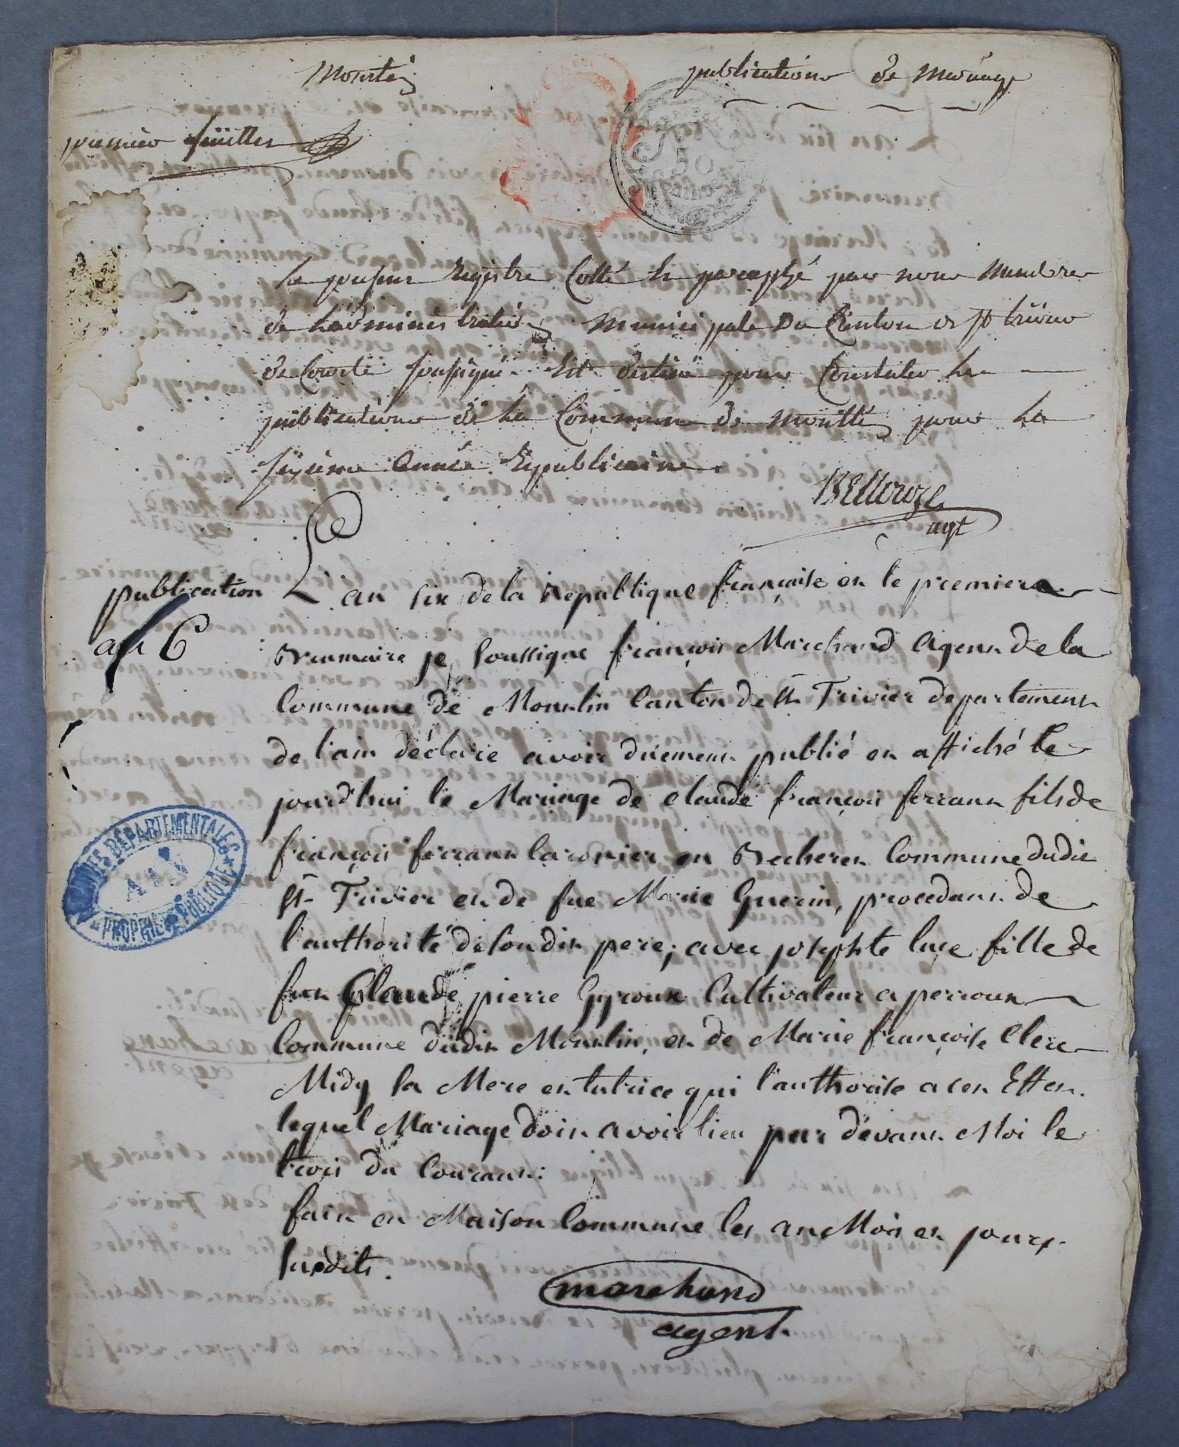 publications de mariage
premier feuillet
Le present Registre Cotté et paraphé par nous Membre
de L'administration Municipale Du Canton de st trivier
de Courte soussigné. Est destiné pour Constater Les
publications de La Commune de pour La
sixieme année Républicaine.
agt
publication
an 6
L'an six de la Republique française en le premier
Brumaire je soussigne françois Marchand agent de la
Commune de Montlin Canton de st Trivier departement
de l'ain déclare avoir duement publié en affiché ce
jourd'hui le Mariage de claude françois ferrann fils de
françois ferrann en Becheren Commune dudit
st Trivier en de fue Marie Guerin, procedann de
l'authorité de son din pere; avec josephte luce fille de
feu Claude pierre Gyroux Cultivateur a perroux
Commune dudin Montlin, en de Marie françoise Clerc
Midy sa Mere en tutrice qui l'authorise a cen Effen.
lequel Mariage doin avoir lieu par devann Moi le
trois du Courann.
fain en Maison Commune les an Mois en jours
susdits.
marchand
agent
ARCHIVES DEPARTEMENTALES
AIN
PROPRIETE PUBLIQUE